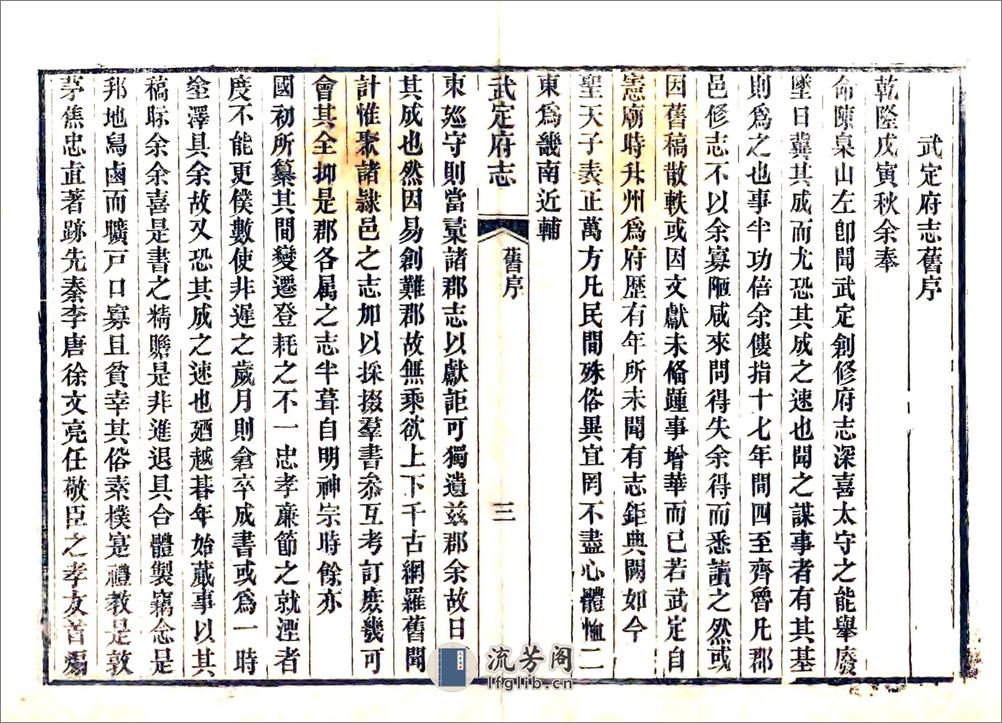 武定府志舊序
乾隆戊寅秋余奉
命陳臬山左卽聞武定創修府志深喜太守之能舉廢
墜日冀其成而尤恐其成之速也聞之謀事者有其基
則爲之也事半功倍余僂指十七年間四至齊魯凡郡
邑修志不以余寡陋咸來問得失余得而悉讀之然或
因舊稿散軼或因文獻未俻踵事增華而已若武定自
憲廟時升州爲府歷有年所未聞有志鉅典闕如今
聖天子表正萬方凡民間殊俗異宜罔不盡心體恤二
東爲畿南近輔
武定府志
舊序
三
東廵守則當彚諸郡志以獻詎可獨遺兹郡余故日
其成也然因易創難郡故無乘欲上下千古網羅舊聞
計惟聚諸隸邑之志加以採掇羣書叅互考訂庶幾可
會其全抑是郡各属之志半葺自明神宗時餘亦
國初所纂其間變遷登耗之不一忠孝廉節之就湮者
度不能更僕數使非遲之歲月則倉卒成書或爲一時
塗澤具余故又恐其成之速也廼越朞年始蕆事以其
稿眎余余喜是書之精贍是非進退具合體製竊念是
邦地舃鹵而曠戸口寡且貧幸其俗素樸寔禮教是敦
茅焦忠直著跡先秦李唐徐文亮任敬臣之孝友首编
流芳阁
lfglib.cn